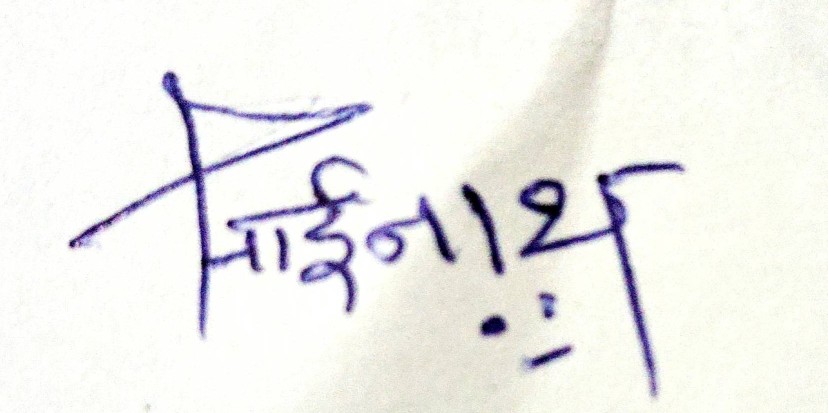 साईनाथ